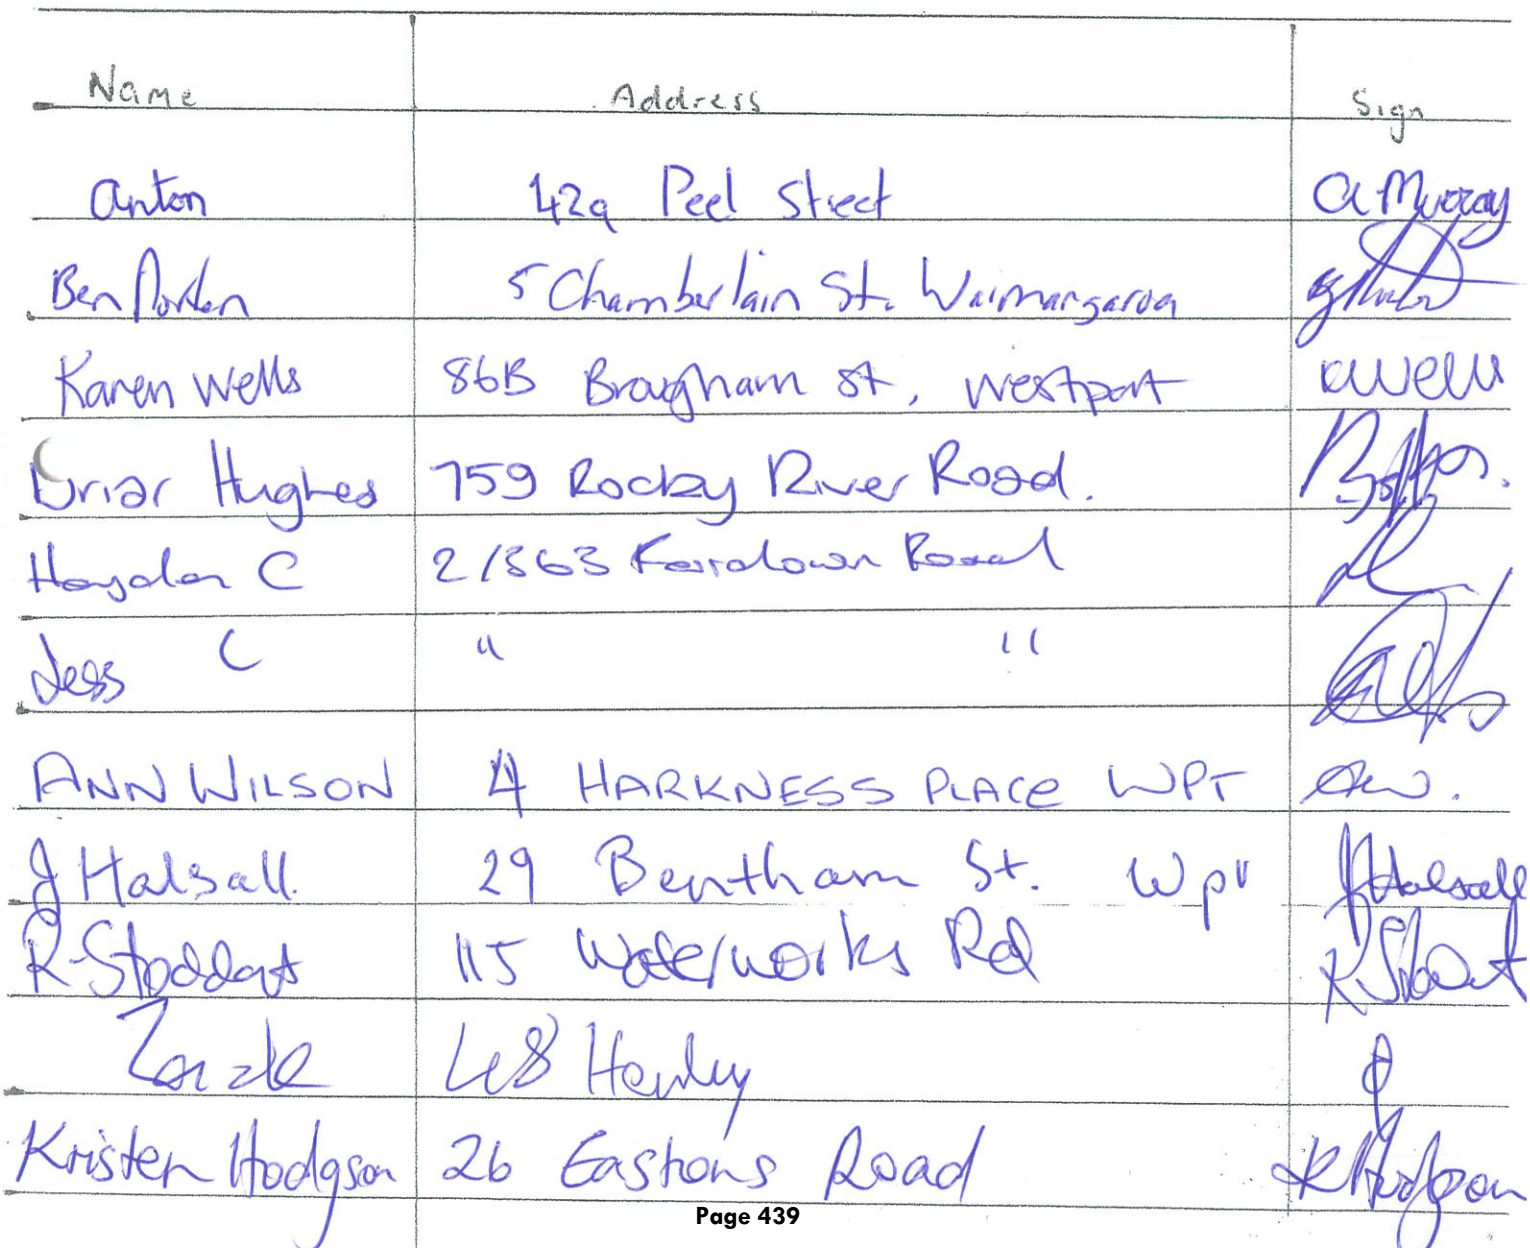 Name Address Sign
Anton 42a Peel Street A Murray
Ben 5 Chamberlain St. Waimangaroa
Karen Wells 86B Brougham St, Westport KWells
Briar Hughes 759 Rocky River Road.
Hayden C 2/363 Fairdown Road
Jess C " "
ANN WILSON 4 HARKNESS PLACE WPT AW.
J Halsall. 29 Bentham St. Wpt JHalsall
R Stoddart 115 Waterworks Rd R Stoddart
48 Henley
Kristen Hodgson 26 Eastons Road K Hodgson
Page 439